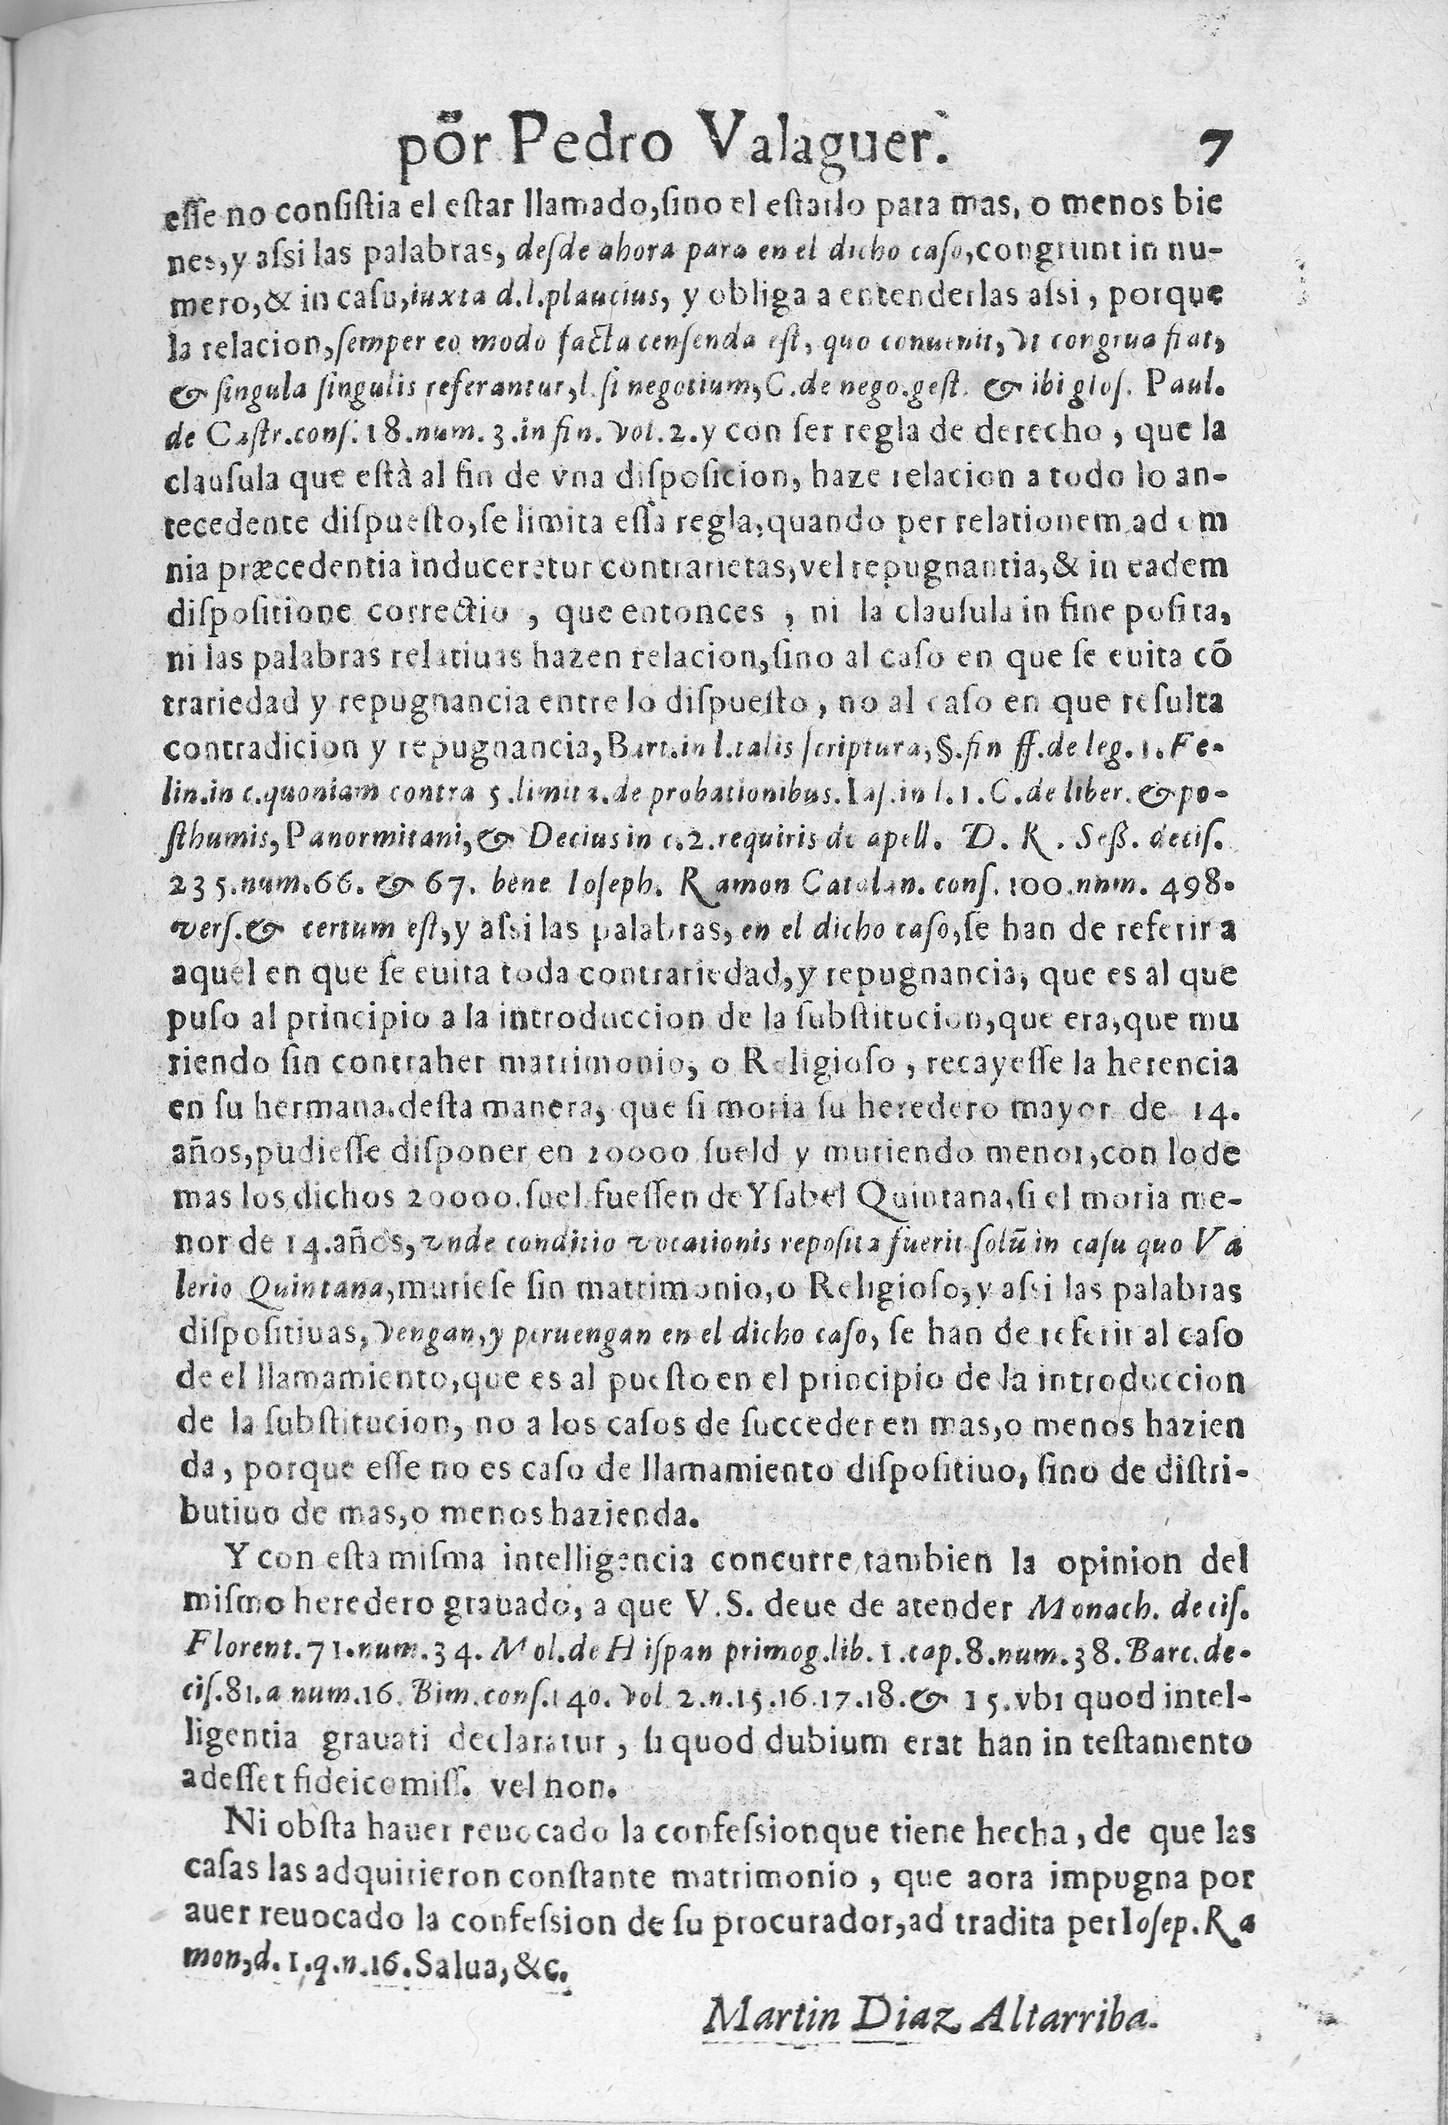 por Pedro Valaguer. 7
esse no consistia el estar llamado, sino el estarlo para mas, o menos bie
nes, y assi las palabras, desde ahora para en el dicho caso, congrunt in nu-
mero, & in casu, iuxta d.l.plaucius, y obliga a entenderlas assi, porque
la relacion, semper eo modo facta censenda est, quo conuenit, vt congrua fiat,
& singula singulis referantur, l. si negotium, C. de nego. gest. & ibi glos. Paul.
de Castr. cons. 18. num. 3. in fin. vol. 2. y con ser regla de derecho, que la
clausula que està al fin de vna disposicion, haze relacion a todo lo an-
tecedente dispuesto, se limita essa regla, quando per relationem ad om
nia præcedentia induceretur contrarietas, vel repugnantia, & in eadem
dispositione correctio, que entonces, ni la clausula in fine posita,
ni las palabras relatiuas hazen relacion, sino al caso en que se euita cõ
trariedad y repugnancia entre lo dispuesto, no al caso en que resulta
contradicion y repugnancia, Bart. in l. talis scriptura, §. fin ff. de leg. 1. Fe-
lin. in c. quoniam contra 5. limit 2. de probationibus. Ias. in l. 1. C. de liber. & po-
sthumis, Panormitani, & Decius in c. 2. requiris de apell. D. R. Seß. decis.
235. num. 66. & 67. bene Ioseph. Ramon Catalan. cons. 100. num. 498.
vers. & certum est, y assi las palabras, en el dicho caso, se han de referir a
aquel en que se euita toda contrariedad, y repugnancia, que es al que
puso al principio a la introduccion de la substitucion, que era, que mu
riendo sin contraher matrimonio, o Religioso, recayesse la herencia
en su hermana. desta manera, que si moria su heredero mayor de 14.
años, pudiesse disponer en 20000 sueld y muriendo menor, con lo de
mas los dichos 20000. suel. fuessen de Ysabel Quintana, si el moria me-
nor de 14. años, vnde conditio vocationis reposita fuerit solũ in casu quo Va
lerio Quintana, muriese sin matrimonio, o Religioso, y assi las palabras
dispositiuas, vengan, y peruengan en el dicho caso, se han de referir al caso
de el llamamiento, que es al puesto en el principio de la introduccion
de la substitucion, no a los casos de succeder en mas, o menos hazien
da, porque esse no es caso de llamamiento dispositiuo, sino de distri-
butiuo de mas, o menos hazienda.
Y con esta misma intelligencia concurre tambien la opinion del
mismo heredero grauado, a que V.S. deue de atender Monach. decis.
Florent. 71. num. 34. Mol. de Hispan primog. lib. 1. cap. 8. num. 38. Barc. de-
cis. 81. a num. 16. Bim. cons. 140. vol 2. n. 15. 16. 17. 18. & 15. vbi quod intel-
ligentia grauati declaratur, si quod dubium erat han in testamento
adesset fideicomiss. vel non.
Ni obsta hauer reuocado la confession que tiene hecha, de que las
casas las adquirieron constante matrimonio, que aora impugna por
auer reuocado la confession de su procurador, ad tradita per Iosep. Ra
mon, d. 1. q. n. 16. Salua, &c.
Martin Diaz Altarriba.